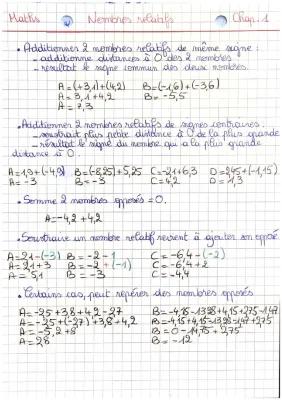 Maths Nombres relatifs Chap. 1
• Additionner 2 nombres relatifs de même signe :
- additionne distances à 0 des 2 nombres
- résultat le signe commun des deux nombres.
A = (+3,1)+(4,2) B = (-1,6)+(-3,6)
A = 3,1+4,2 B = -5,5
A = 7,3
• Additionner 2 nombres relatifs de signes contraires :
- soustrait plus petite distance à 0 de la plus grande
- résultat le signe du nombre qui a la plus grande
distance à 0.
A = 1,9+(-4,9) B = (-8,25)+5,25 C = -2,1+6,3 D = 2,45+(-1,15)
A = -3 B = -3 C = 4,2 D = 1,3
• Somme 2 nombres opposés = 0.
A = -4,2+4,2
• Soustraire un nombre relatif revient à ajouter son opposé
A = 2,1-(-3) B = -2-1 C = -6,4-(-2)
A = 2,1+3 B = -2+(-1) C = -6,4+2
A = 5,1 B = -3 C = -4,4
• Certains cas, peut repérer des nombres opposés
A = -25+3,8+4,2-27 B = -4,15-13,28+4,15+2,75-1,47
A = -25+(-27)+3,8+4,2 B = -4,15+4,15-13,28-1,47+2,75
A = -5,2+8 B = 0-14,75+2,75
A = 2,8 B = -12